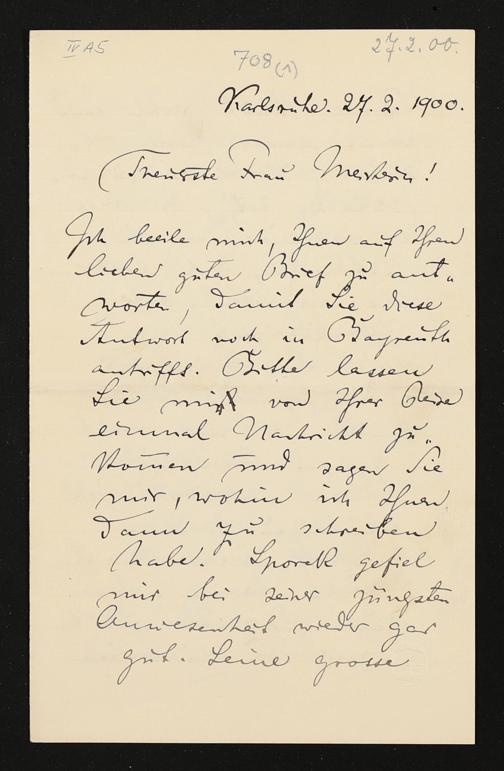 IV A5
27.2.00.
708(1)
Karlsruhe. 27. 2. 1900.
Theuerste Frau Meisterin!
Ich beeile mich, Ihnen auf Ihren
lieben guten Brief zu ant-
worten, damit Sie diese
Antwort noch in Bayreuth
antrifft. Bitte lassen
Sie mir von Ihrer Reise
einmal Nachricht zu-
kommen und sagen Sie
mir, wohin ich Ihnen
dann zu schreiben
habe. Sporck gefiel
mir bei seiner jüngsten
Anwesenheit wieder gar
gut. Seine grosse